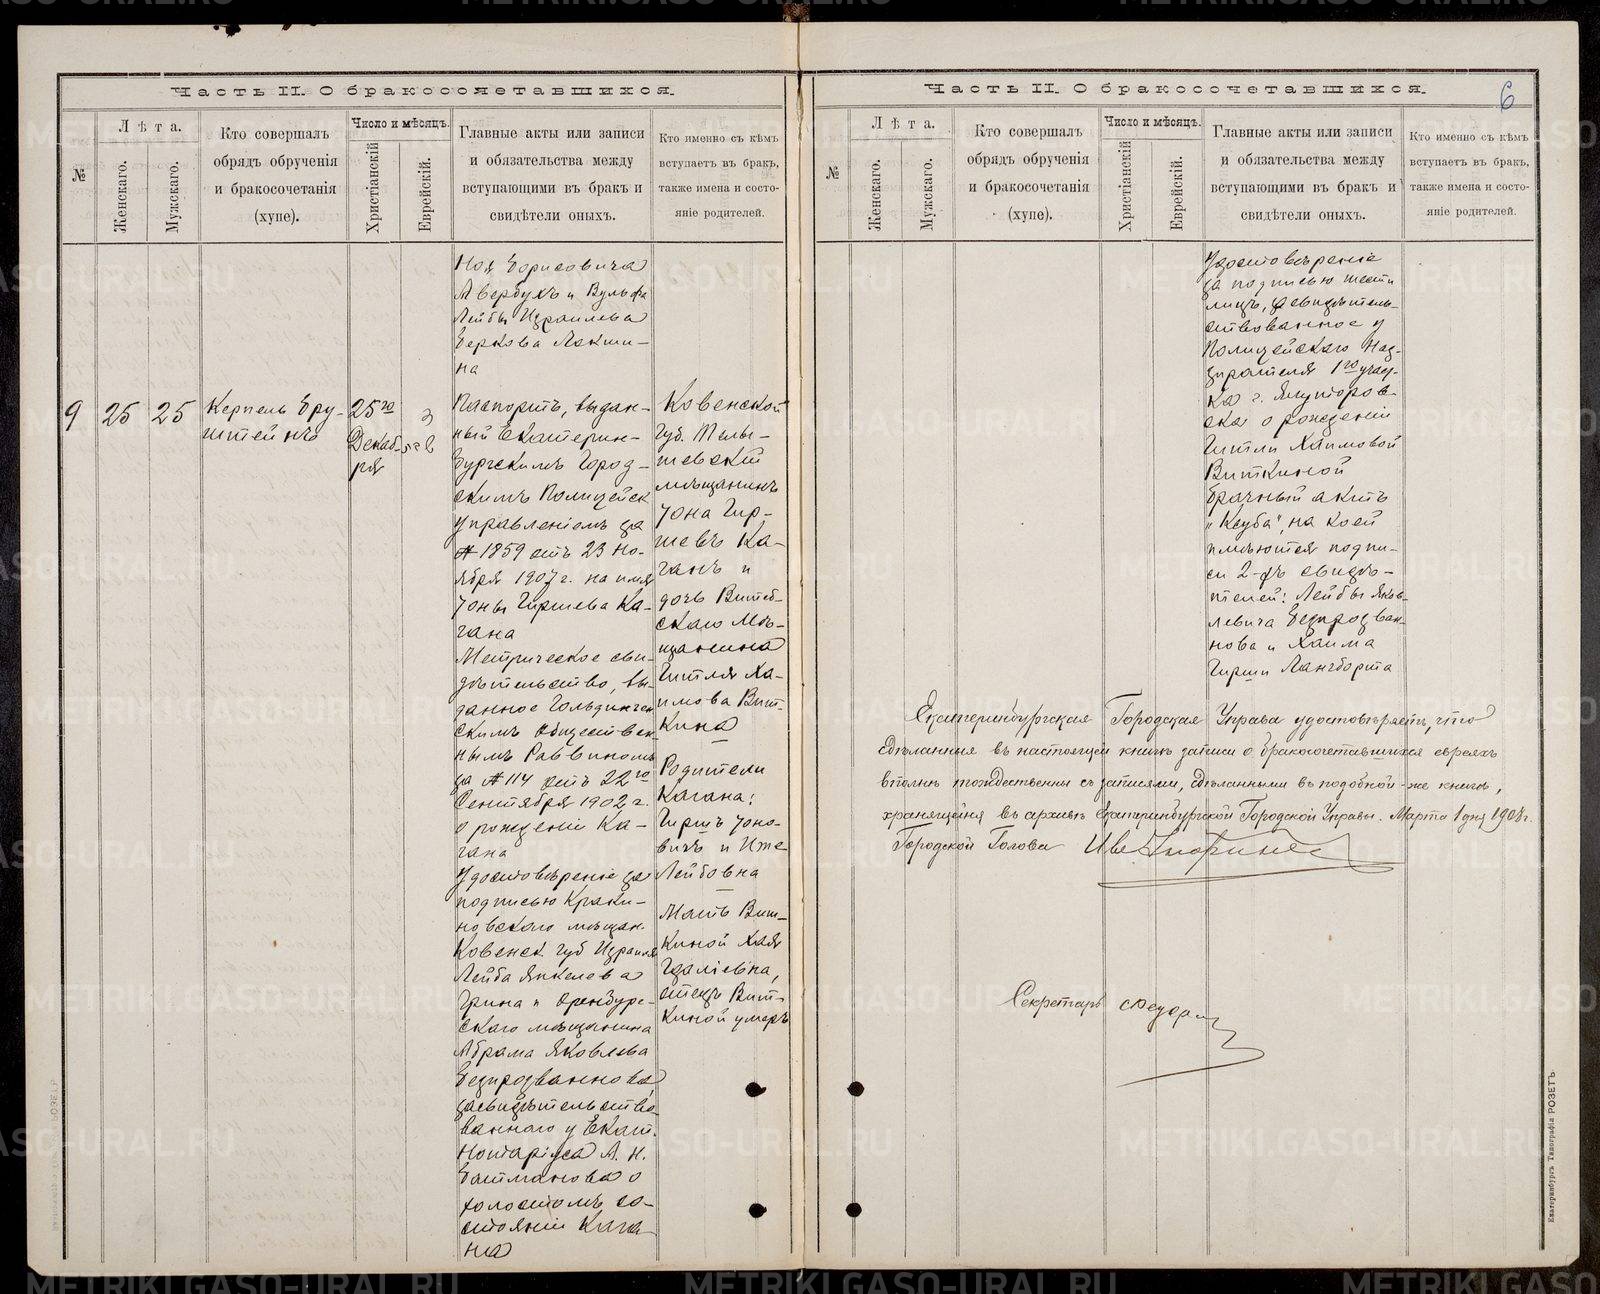 Часть II. О бракосочетавшихся.
№
Лѣта.
Женскаго.
Мужскаго.
Кто совершалъ
обрядъ обрученія
и бракосочетанія
(хупе).
Число и мѣсяцъ.
Христіанскій
Еврейскій.
Главные акты или записи
и обязательства между
вступающими въ бракъ и
свидѣтели оныхъ.
Кто именно съ кѣмъ
вступаетъ въ бракъ,
также имена и состо-
яніе родителей.
Ноя Борисовича
Авербухъ и Вульфа
Лейбы Израилева
Беркова Локши-
на
9
25
25
Керпель Бру-
штейнъ
25го
Декаб-
ря
3
Паспортъ, выдан-
ный Екатерин-
бургскимъ Город-
скимъ Полицейск
управленіемъ за
№ 1859 отъ 23 но-
ября 1907 г. на имя
Іоны Гиршева Ка-
гана
Метрическое сви-
дѣтельство, вы-
данное Гольдинген
скимъ Обществен
нымъ Раввиномъ
за № 114 отъ 22го
Сентября 1902 г.
о рожденіи Ка-
гана
Удостовѣреніе за
подписью Краки-
новскаго мѣщан.
Ковенск. губ Израиля
Лейба Янкелева
Грина и Оренбург-
скаго мѣщанина
Абрама Яковлева
Безпрозваннова,
засвидѣтельство-
ваннаго у Екат.
Нотаріуса А. Н.
Батманова о
холостомъ со-
стояніи Кага-
на
Ковенской
губ. Тель-
шевскій
мѣщанинъ
Іона Гир-
шевъ Ка-
ганъ и
дочь Витеб-
скаго Мѣ-
щанина
Гитля Ха-
имова Вит-
кина
Родители
Кагана:
Гиршъ Іоно-
вичъ и Итке
Лейбовна
Мать Вит-
киной Хая
отецъ Вит-
киной умеръ
Часть II. О бракосочетавшихся.
6
№
Лѣта.
Женскаго.
Мужскаго.
Кто совершалъ
обрядъ обрученія
и бракосочетанія
(хупе).
Число и мѣсяцъ.
Христіанскій
Еврейскій.
Главные акты или записи
и обязательства между
вступающими въ бракъ и
свидѣтели оныхъ.
Кто именно съ кѣмъ
вступаетъ въ бракъ,
также имена и состо-
яніе родителей.
Удостовѣреніе
за подписью шести
лицъ, засвидѣтель-
ствованное у
Полицейскаго Над-
зирателя 1го участ-
ка г. Ялуторов-
ска о рожденіи
Гитли Хаимовой
Виткиной
Брачный актъ
"Ксуба", на коей
имѣются подпи-
си 2-хъ свидѣ-
телей: Лейбы Яков-
левича Безпрозван-
нова и Хаима
Гирши Лангборта
Екатеринбургская Городская Управа удостовѣряетъ, что
сдѣланныя въ настоящей книгѣ записи о бракосочетавшихся евреяхъ
вполнѣ тождественны съ записями, сдѣланными въ подобной-же книгѣ,
хранящейся въ архивѣ Екатеринбургской Городской Управы. Марта 1 дня 1908 г.
Городской Голова
Секретарь
Екатеринбургъ Типографія РОЗЕТЪ
METRIKI.GASO-URAL.RU